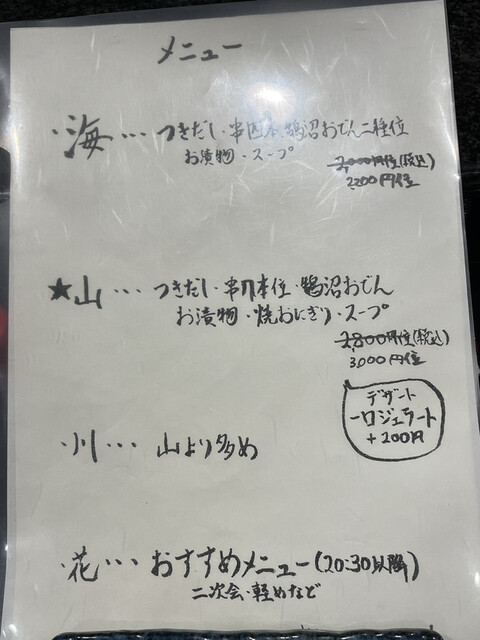 メニュー
・海・・・つきだし・串四本・鵠沼おでん二種位
お漬物・スープ
2,000円位(税込)
2200円位
★山・・・つきだし・串八本位・鵠沼おでん
お漬物・焼おにぎり・スープ
2,800円位(税込)
3,000円位
デザート
一口ジェラート
+200円
・川・・・山より多め
・花・・・おすすめメニュー(20:30以降)
二次会・軽めなど